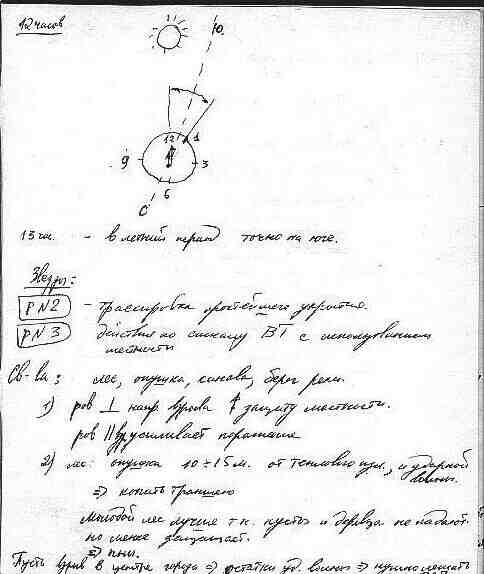 12 часов
Ю.
12
1
9
3
6
С
13 час. - в летний период точно на юге.
Звезды:
РN2 - трассировка простейшего укрытия.
РN3 действия по сигналу ВТ с использованием
местности
Св-ва: лес, опушка, канава, берег реки.
1) ров ⊥ напр. взрыва ↑ защиту местности.
ров || усиливает поражение
2) лес: опушка 10÷15 м. от теплового изл., и ударной
волны.
⇒ копать траншею
Молодой лес лучше т.к. пустоты и деревца не падают.
но менее защищает.
⇒ пни.
Пусть взрыв в центре города ⇒ остатки уд. волны ⇒ нужно